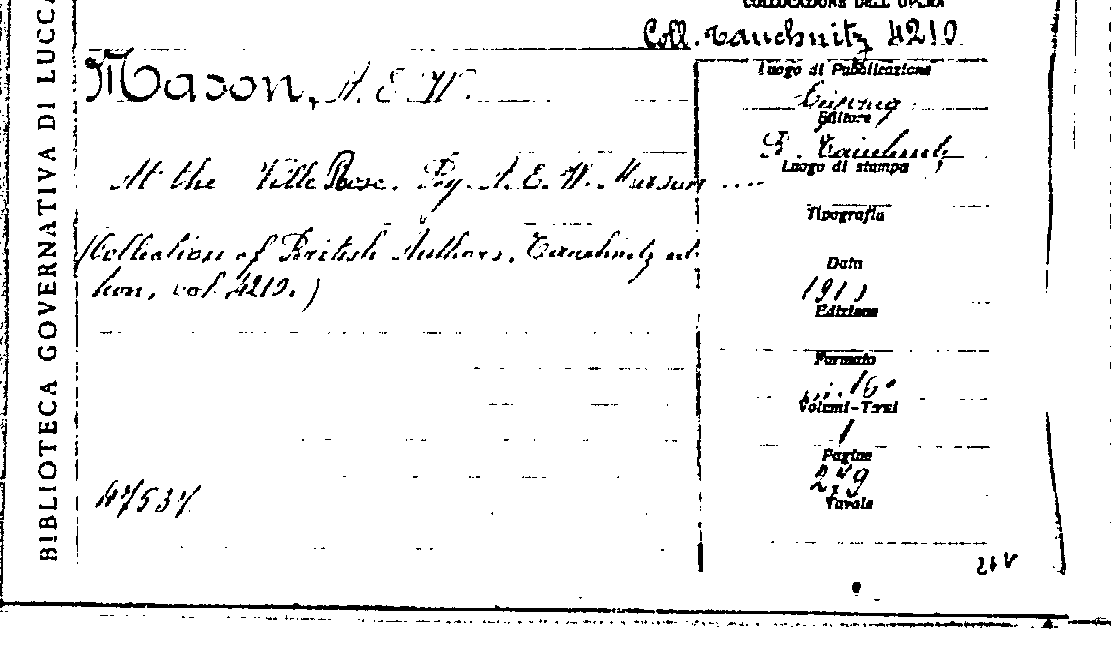 BIBLIOTECA GOVERNATIVA DI LUCCA
COLLOCAZIONE DELL'OPERA
Coll. Tauchnitz 4210
Mason, A. E. W.
At the Villa Rose. By A. E. W. Mason ....
(Collection of British Authors. Tauchnitz edi-
tion, vol. 4210.)
47537
Luogo di Pubblicazione
Editore
B. Tauchnitz
Luogo di stampa
Tipografia
Data
Edizione
Formato
16°
Volumi-Tomi
1
Pagine
279
Tavole